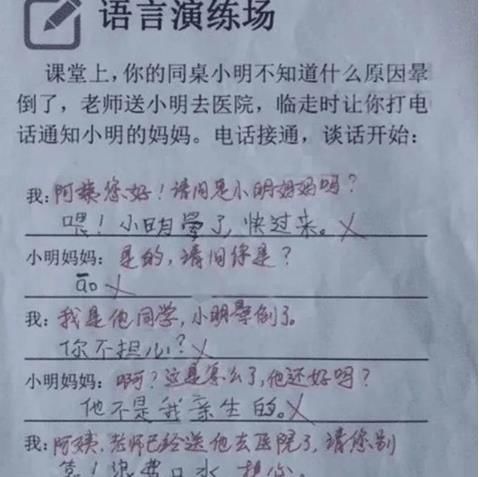 语言演练场
课堂上，你的同桌小明不知道什么原因晕
倒了，老师送小明去医院，临走时让你打电
话通知小明的妈妈。电话接通，谈话开始：
我：阿姨您好！请问是小明妈妈吗？
喂！小明晕了，快过来。
小明妈妈：是的，请问你是？
āo
我：我是他同学，小明晕倒了。
你不担心？
小明妈妈：啊？这是怎么了，他还好吗？
他不是我亲生的。
我：阿姨，老师已经送他去医院了，请您别
浪费口水 担心。